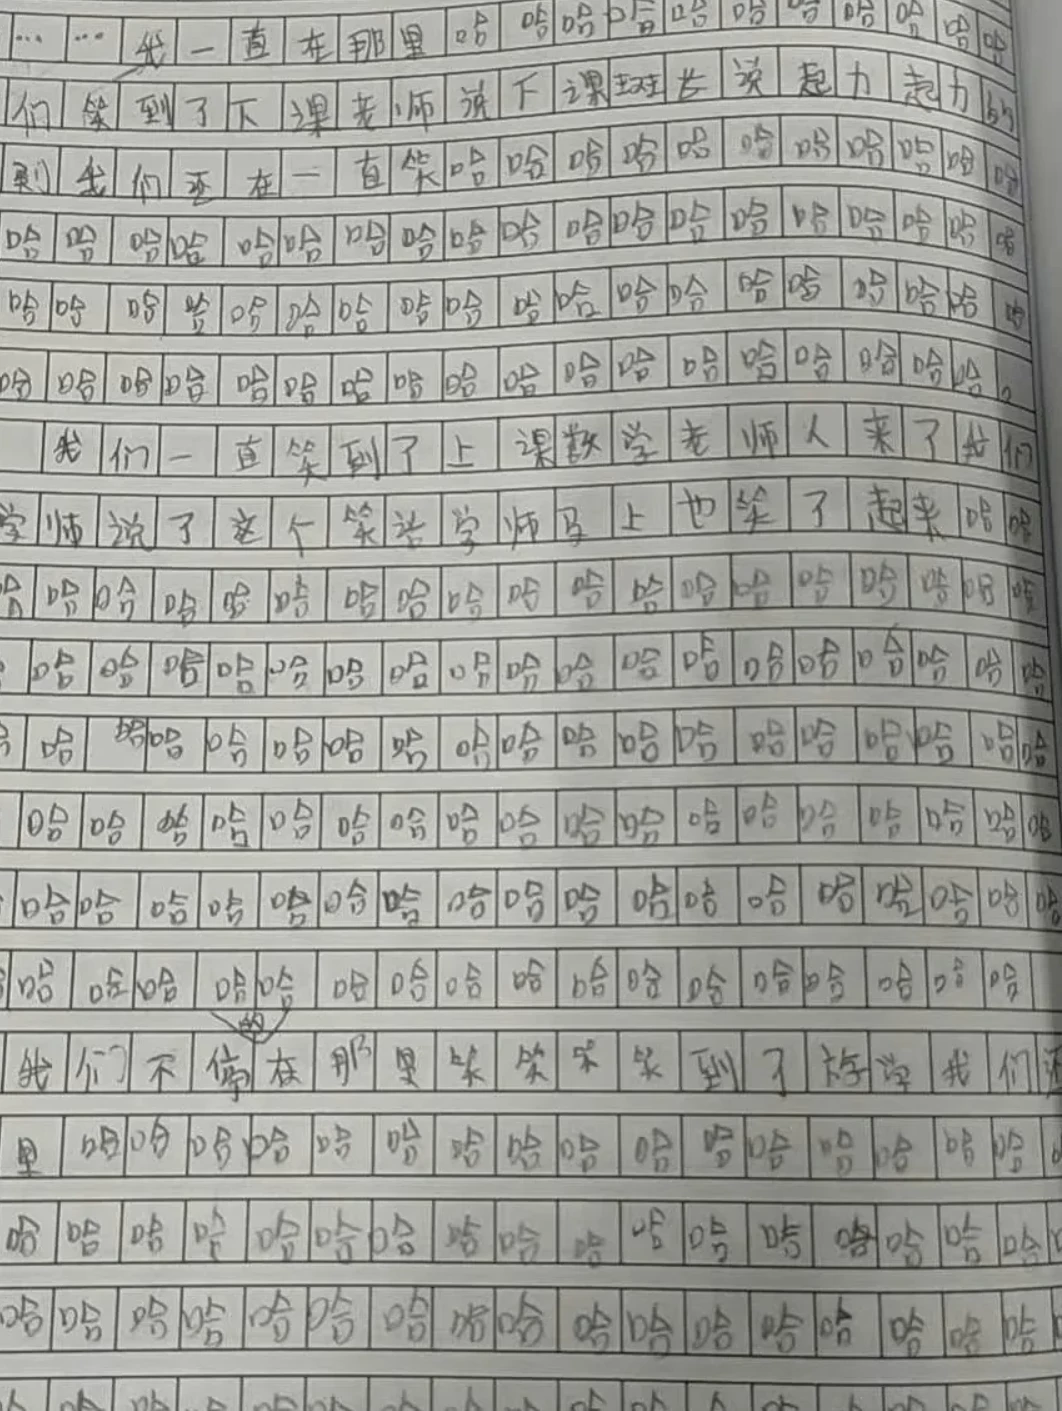 ……我一直在那里哈哈哈哈哈哈哈哈哈哈哈
们笑到了下课老师说下课班长说起力起力
到我们还在一直笑哈哈哈哈哈哈哈哈哈哈哈
哈哈哈哈哈哈哈哈哈哈哈哈哈哈哈哈哈哈哈
哈哈哈哈哈哈哈哈哈哈哈哈哈哈哈哈哈哈哈
哈哈哈哈哈哈哈哈哈哈哈哈哈哈哈哈哈哈。
我们一直笑到了上课数学老师人来了我们
学师说了这个笑话学师马上也笑了起来哈哈
哈哈哈哈哈哈哈哈哈哈哈哈哈哈哈哈哈哈哈
哈哈哈哈哈哈哈哈哈哈哈哈哈哈哈哈哈哈
哈哈哈哈哈哈哈哈哈哈哈哈哈哈哈哈哈哈哈
哈哈哈哈哈哈哈哈哈哈哈哈哈哈哈哈哈哈
哈哈哈哈哈哈哈哈哈哈哈哈哈哈哈哈哈哈
哈哈哈哈哈哈哈哈哈哈哈哈哈哈哈哈哈
我们不停的在那里笑笑笑笑到了放学我们还
里哈哈哈哈哈哈哈哈哈哈哈哈哈哈哈哈
哈哈哈哈哈哈哈哈哈哈哈哈哈哈哈哈哈
哈哈哈哈哈哈哈哈哈哈哈哈哈哈哈哈哈